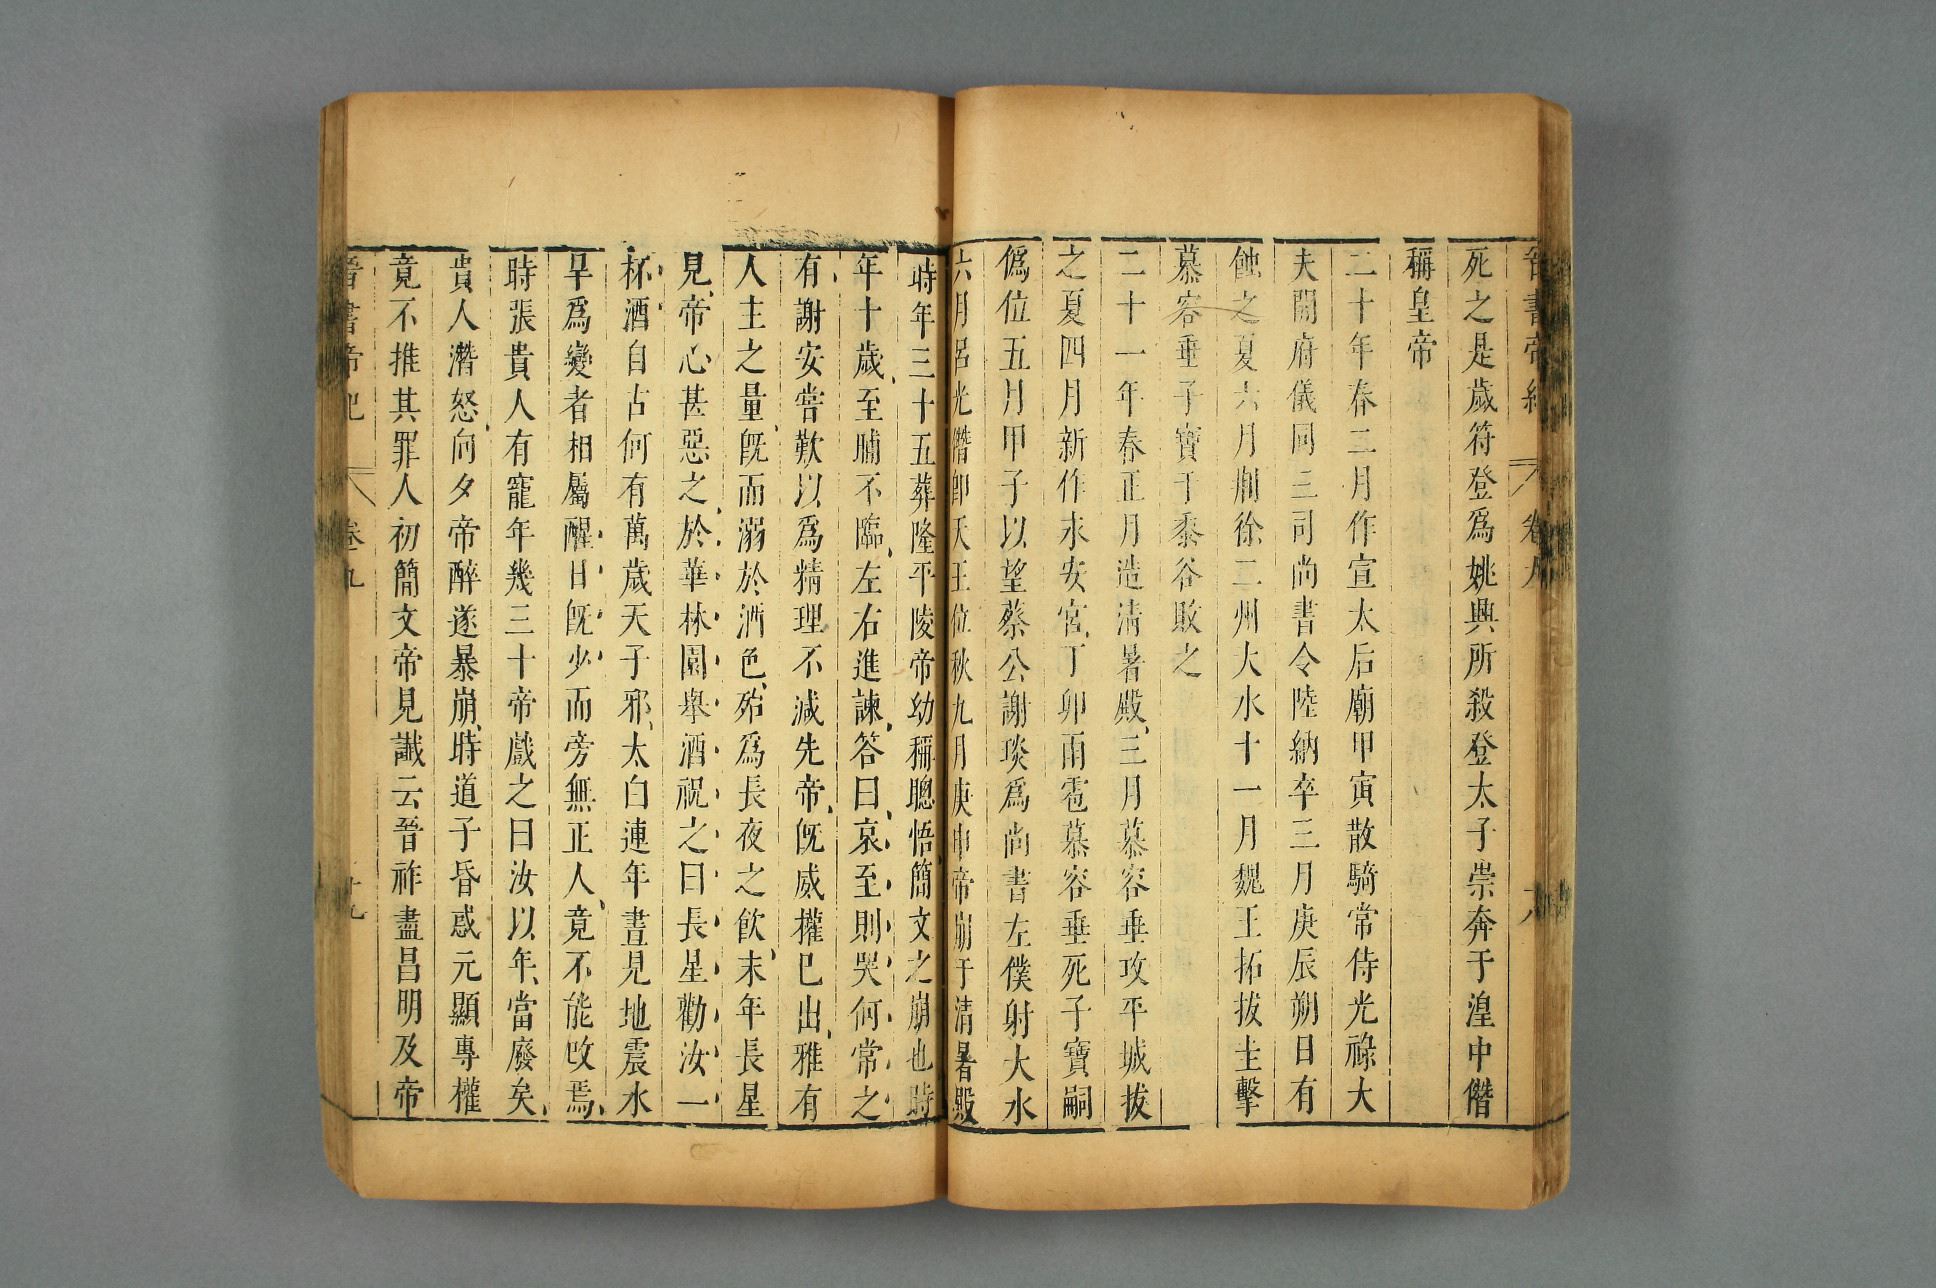 晉書帝紀 卷九 十八
死之是歲符登爲姚興所殺登太子崇奔于湟中僭
稱皇帝
二十年春二月作宣太后廟甲寅散騎常侍光祿大
夫開府儀同三司尚書令陸納卒三月庚辰朔日有
蝕之夏六月荆徐二州大水十一月魏王拓拔圭擊
慕容垂子寶于黍谷敗之
二十一年春正月造清暑殿三月慕容垂攻平城拔
之夏四月新作永安宮丁卯雨雹慕容垂死子寶嗣
僞位五月甲子以望蔡公謝琰爲尚書左僕射大水
六月呂光僭卽天王位秋九月庚申帝崩于清暑殿
時年三十五葬隆平陵帝幼稱聰悟簡文之崩也時
年十歲至晡不臨左右進諫答曰哀至則哭何常之
有謝安嘗歎以爲精理不減先帝旣威權已出雅有
人主之量旣而溺於酒色殆爲長夜之飲末年長星
見帝心甚惡之於華林園舉酒祝之曰長星勸汝一
杯酒自古何有萬歲天子邪太白連年晝見地震水
旱爲變者相屬醒日旣少而旁無正人竟不能改焉
時張貴人有寵年幾三十帝戲之曰汝以年當廢矣
貴人潛怒向夕帝醉遂暴崩時道子昏惑元顯專權
竟不推其罪人初簡文帝見讖云晉祚盡昌明及帝
晉書帝紀 卷九 十九